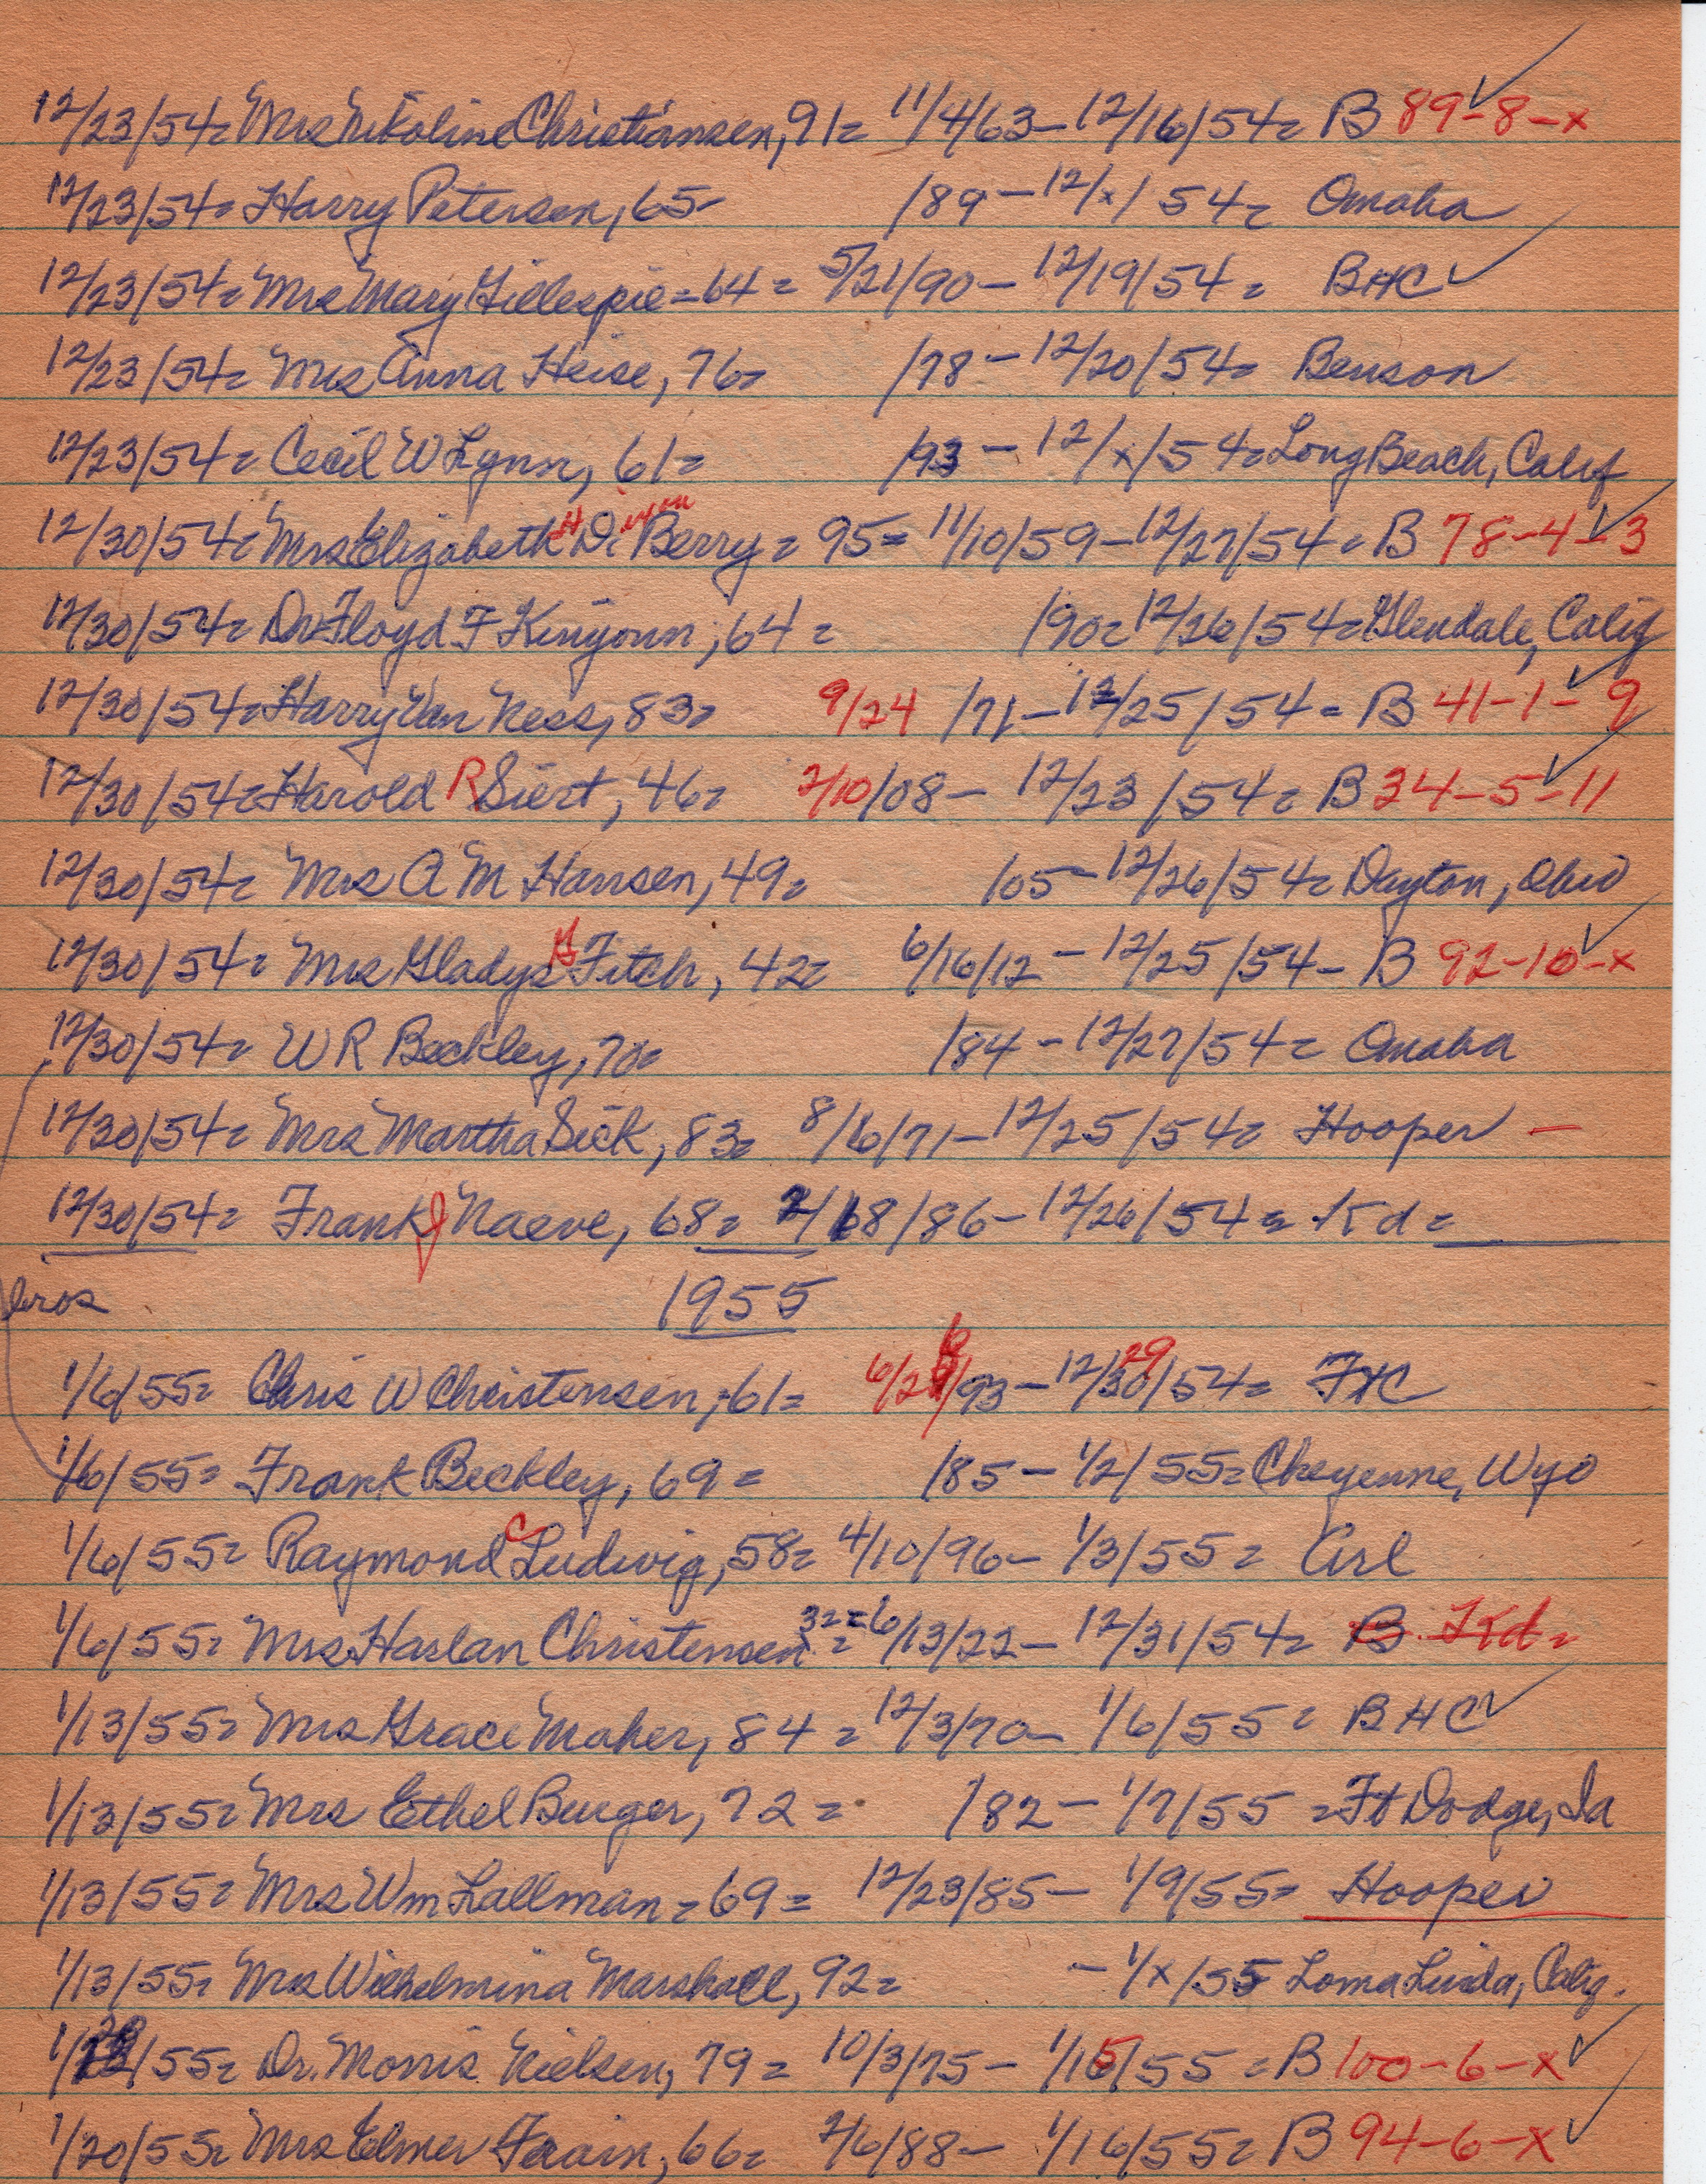 12/23/54= Mrs Nikoline Christiansen, 91= 11/4/63 - 12/16/54= B 89-8-x
12/23/54= Harry Petersen, 65- /89 - 12/x/54= Omaha
12/23/54= Mrs Mary Gillespie = 64 = 5/21/90 - 12/19/54= BHC
12/23/54= Mrs Anna Heise, 76= /78 - 12/20/54= Benson
12/23/54= Cecil W Lynn, 61= /93 - 12/x/54= Long Beach, Calif
12/30/54= Mrs Elizabeth H Berry = 95= 11/10/59 - 12/27/54= B 78-4-3
12/30/54= Dr Floyd F Kinyoun, 64= /90= 12/26/54= Glendale, Calif
12/30/54= Harry Van Ness, 83= 9/24/71 - 12/25/54= B 41-1-9
12/30/54= Harold R Siert, 46= 2/10/08 - 12/23/54= B 34-5-11
12/30/54= Mrs A M Hansen, 49= /05 - 12/26/54= Dayton, Ohio
12/30/54= Mrs Gladys G Fitch, 42= 6/16/12 - 12/25/54 - B 92-10-x
12/30/54= W R Beckley, 70= /84 - 12/27/54= Omaha
12/30/54= Mrs Martha Sick, 83= 8/16/71 - 12/25/54= Hooper -
12/30/54= Frank J Naeve, 68= 2/18/86 - 12/26/54= Kd=
bros 1955
1/6/55= Chris W Christensen, 61= 6/26/93 - 12/29/54= FHC
1/6/55= Frank Beckley, 69= /85 - 1/2/55= Cheyenne, Wyo
1/6/55= Raymond C Ludwig, 58= 4/10/96 - 1/3/55= Arl
1/6/55= Mrs Harlan Christensen 32= 6/13/22 - 12/31/54= B Kd=
1/13/55= Mrs Grace Maher, 84= 12/3/70 - 1/6/55= BHC
1/13/55= Mrs Ethel Burger, 72= /82 - 1/7/55 = Ft Dodge, Ia
1/13/55= Mrs Wm Lallman = 69= 12/23/85 - 1/9/55= Hooper
1/13/55= Mrs Wilhelmina Marshall, 92= - 1/x/55 Loma Linda, Calif.
1/20/55= Dr. Morris Nielsen, 79= 10/3/75 - 1/15/55 = B 100-6-x
1/20/55= Mrs Elmer Frain, 66= 2/6/88 - 1/16/55= B 94-6-x